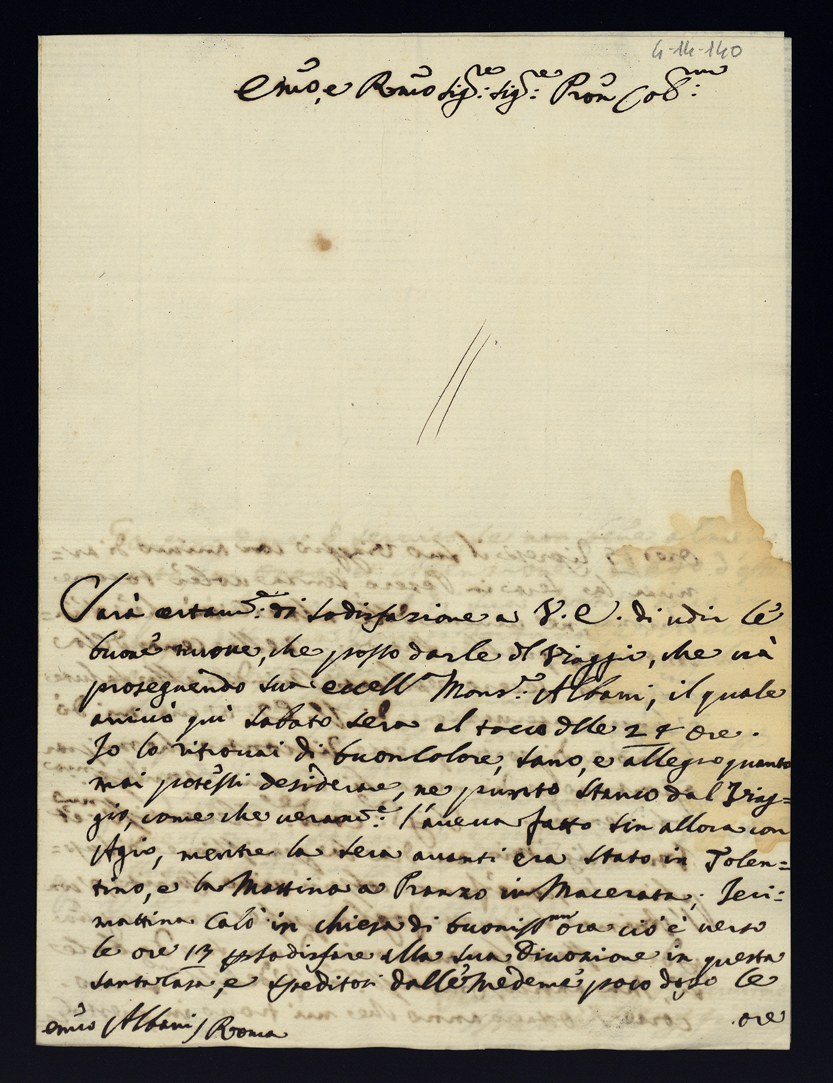 4-14-140
Emo, e Rmo Sigre: Sigre: Pron Colmo:
Sarà certamte: di sodisfazione a V. E. di udir le
buone nuove, che posso darle del Viaggio, che và
proseguendo sua eccellza Monsr: Albani, il quale
arrivò quì Sabato sera al tocco delle 24 ore.
Io lo ritrovai di buon Colore, sano, e allegro quanto
mai potessi desiderare, ne punto stanco dal Viag=
gio, come che veramte: l'aveva fatto sin allora con
Agio, mentre la sera avanti era stato in Tolen=
tino, e la Mattina a Pranzo in Macerata; Ieri=
mattina Calò in chiesa di buonissma ora ciò è verso
le ore 13 p sodisfare alla sua Divozione in questa
Santa Casa, e speditosi dalle medeme poco dopo le
ore
Emo Albani Roma